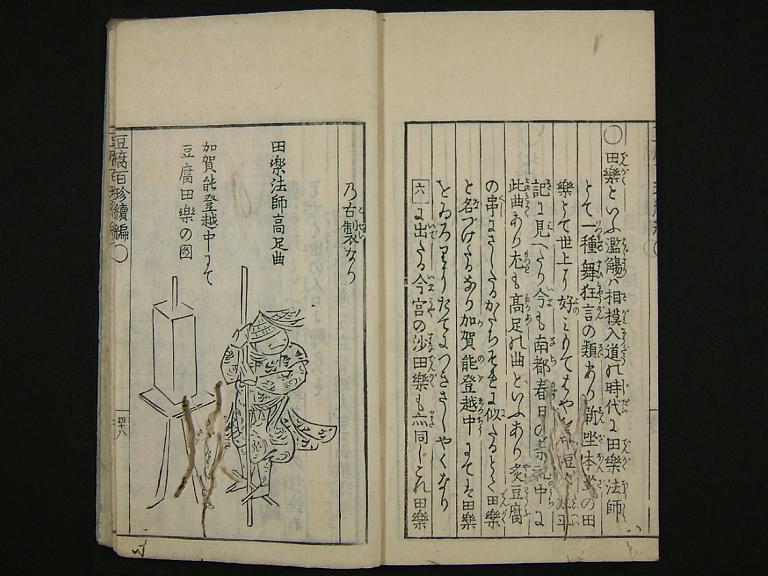 ○田樂といふ濫觴ハ相摸入道の時代に田樂法師
とて一種舞狂言の類あり新坐本坐の田
樂とて世上に好ミもてはやせし
記に見へたり今も南都春日の祭礼中に
此曲あり尤も高足の曲といふあり炙豆腐
の串にさしたるかたちそれに似たるとて田樂
と名づけたるなり加賀能登越中にてハ田樂
をゐろりにたてにつきさしやくなり
六に出たる今宮の沙田樂も亦同じこれ田樂
乃古製なり
田樂法師高足曲
加賀能登越中にて
豆腐田樂の図
豆腐百珍續編○
四十八